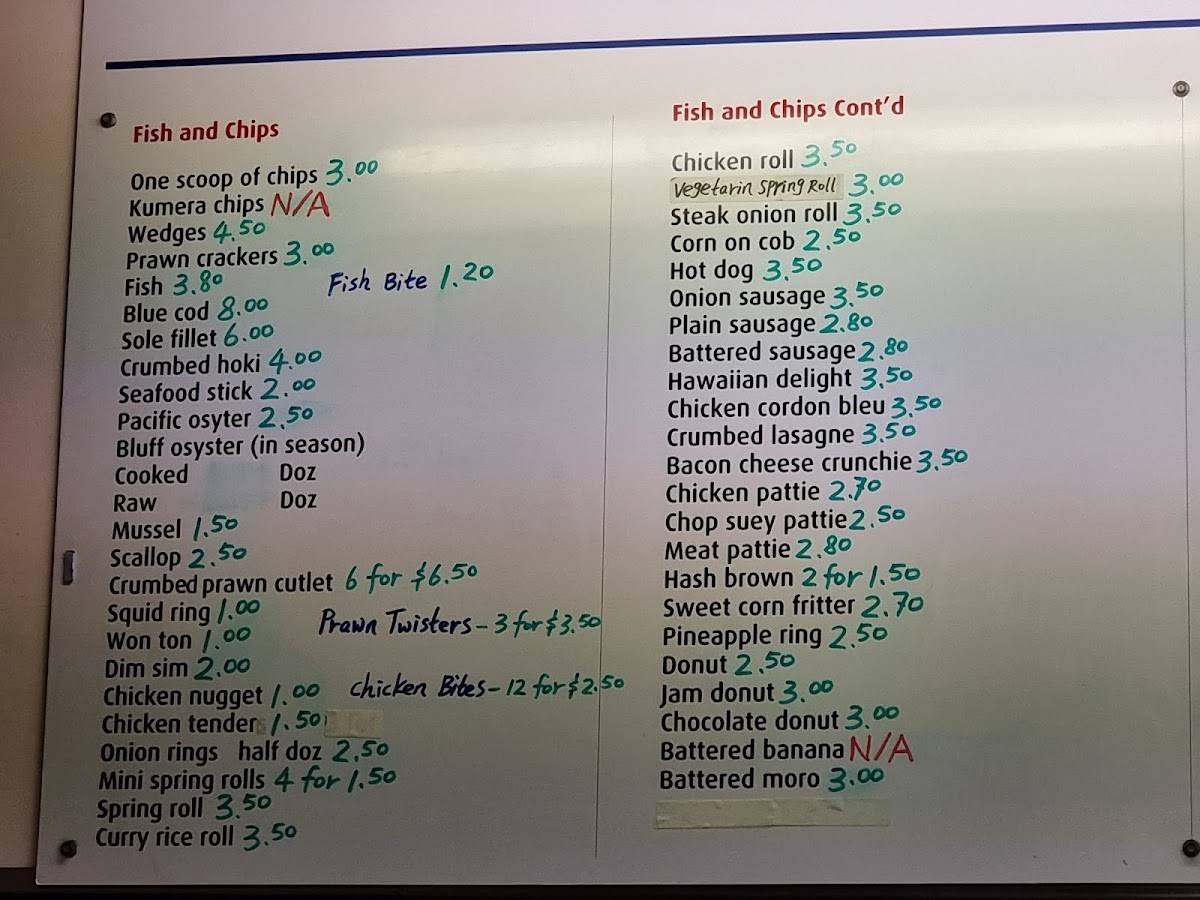 Fish and Chips
One scoop of chips 3.00
Kumera chips N/A
Wedges 4.50
Prawn crackers 3.00
Fish 3.80 Fish Bite 1.20
Blue cod 8.00
Sole fillet 6.00
Crumbed hoki 4.00
Seafood stick 2.00
Pacific osyter 2.50
Bluff osyster (in season)
Cooked Doz
Raw Doz
Mussel 1.50
Scallop 2.50
Crumbed prawn cutlet 6 for $6.50
Squid ring 1.00 Prawn Twisters - 3 for $3.50
Won ton 1.00
Dim sim 2.00
Chicken nugget 1.00 chicken Bites - 12 for $2.50
Chicken tenders 1.50
Onion rings half doz 2.50
Mini spring rolls 4 for 1.50
Spring roll 3.50
Curry rice roll 3.50
Fish and Chips Cont'd
Chicken roll 3.50
Vegetarin Spring Roll 3.00
Steak onion roll 3.50
Corn on cob 2.50
Hot dog 3.50
Onion sausage 3.50
Plain sausage 2.80
Battered sausage 2.80
Hawaiian delight 3.50
Chicken cordon bleu 3.50
Crumbed lasagne 3.50
Bacon cheese crunchie 3.50
Chicken pattie 2.70
Chop suey pattie 2.50
Meat pattie 2.80
Hash brown 2 for 1.50
Sweet corn fritter 2.70
Pineapple ring 2.50
Donut 2.50
Jam donut 3.00
Chocolate donut 3.00
Battered banana N/A
Battered moro 3.00